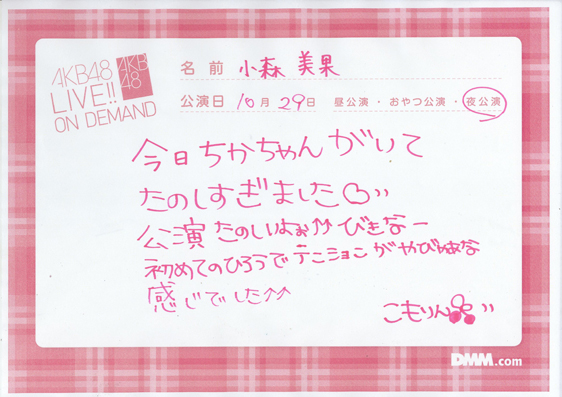 AKB48
LIVE!!
ON DEMAND
AKB
48
名前 小森 美果
公演日 10月29日 昼公演・おやつ公演・夜公演
今日ちかちゃんがいて
たのしすぎました
公演たのしいよぉ↑↑びもなー
初めてのひろうでテンションがやびゎぁな
感じでした↑↑
こもりん
DMM.com